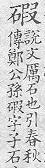 碬
說文厲石也引春秋
傳鄭公孫碬字子石